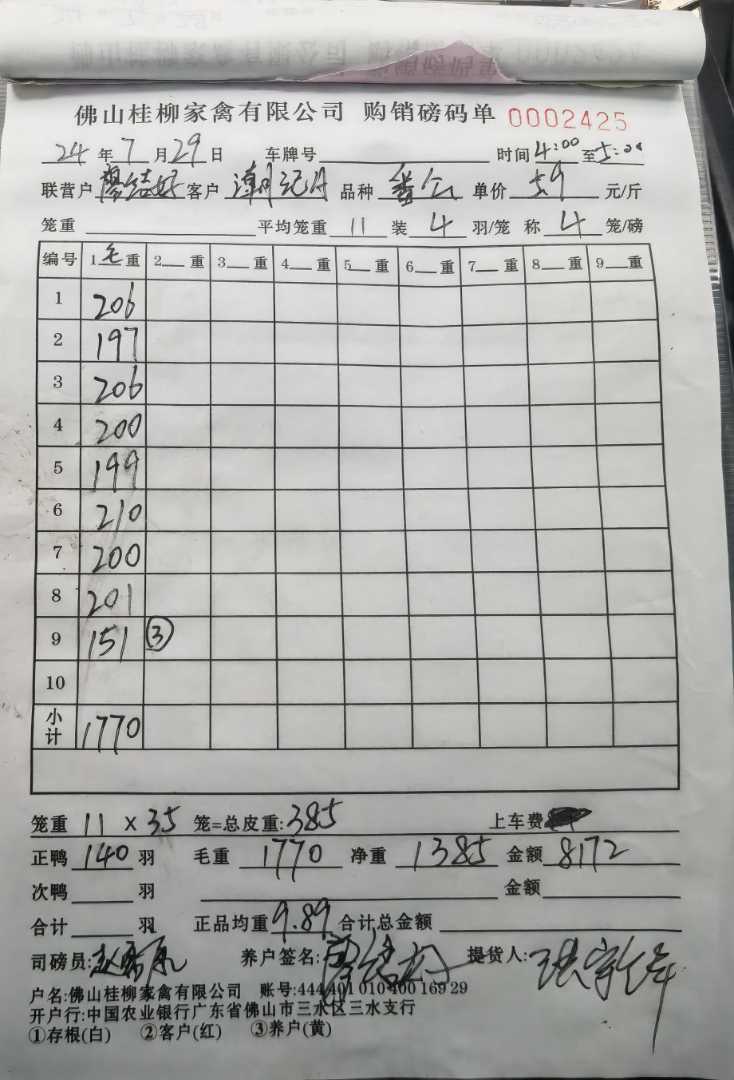 佛山桂柳家禽有限公司 购销磅码单 0002425
24年7月29日 车牌号 时间4:00至5:00
联营户 廖结好 客户 潮记 品种 番仝 单价 59 元/斤
笼重 平均笼重 11 装 4 羽/笼 称 4 笼/磅
编号 1毛重 2重 3重 4重 5重 6重 7重 8重 9重
1 206
2 197
3 206
4 200
5 199
6 210
7 200
8 201
9 151 ③
10
小计 1770
笼重 11 X 35 笼=总皮重:385 上车费
正鸭 140 羽 毛重 1770 净重 1385 金额 8172
次鸭 羽 金额
合计 羽 正品均重 9.89 合计总金额
司磅员: 养户签名: 提货人:
户名:佛山桂柳家禽有限公司 账号:444 401 010 400 169 29
开户行:中国农业银行广东省佛山市三水区三水支行
①存根(白) ②客户(红) ③养户(黄)